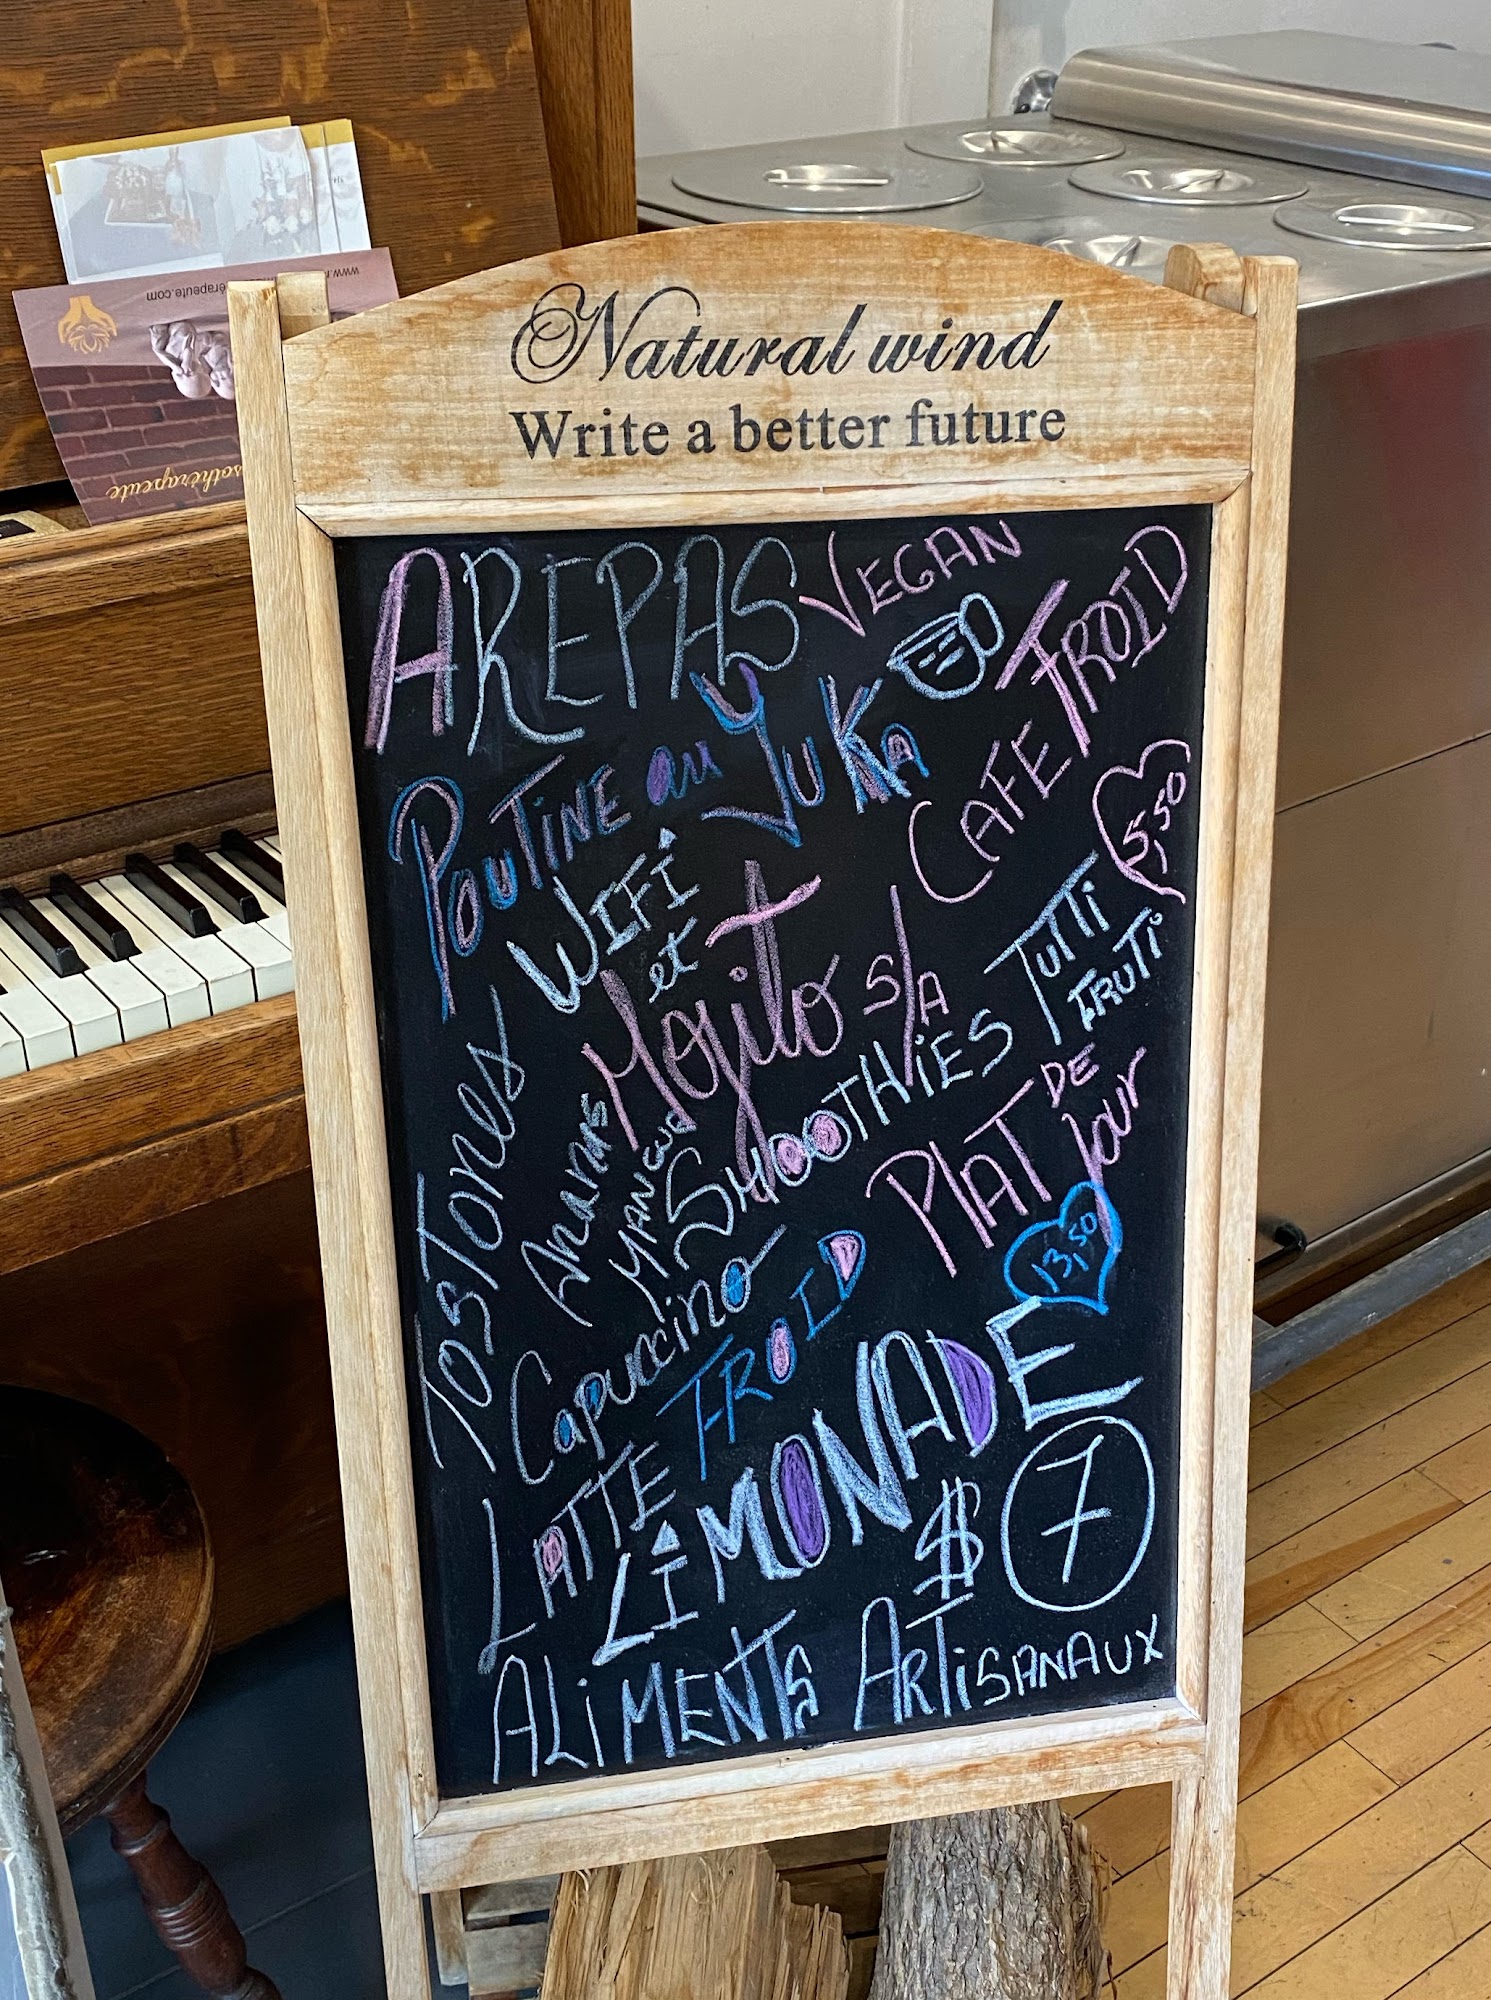 www.
érapeute.com
sothérapeute
Natural wind
Write a better future
AREPAS VEGAN
POUTINE au YUKA
CAFE FROID
5,50
WIFI
et
Mojito s/A
TUTTI
FRUTi
TOSTONES
ANANAS
MANGUO
SMOOTHiES
PLAT DE
JOUR
13,50
Capuccino
FROID
LATTE
LiMONADE
$ 7
ALiMENTS ARTiSANAUX